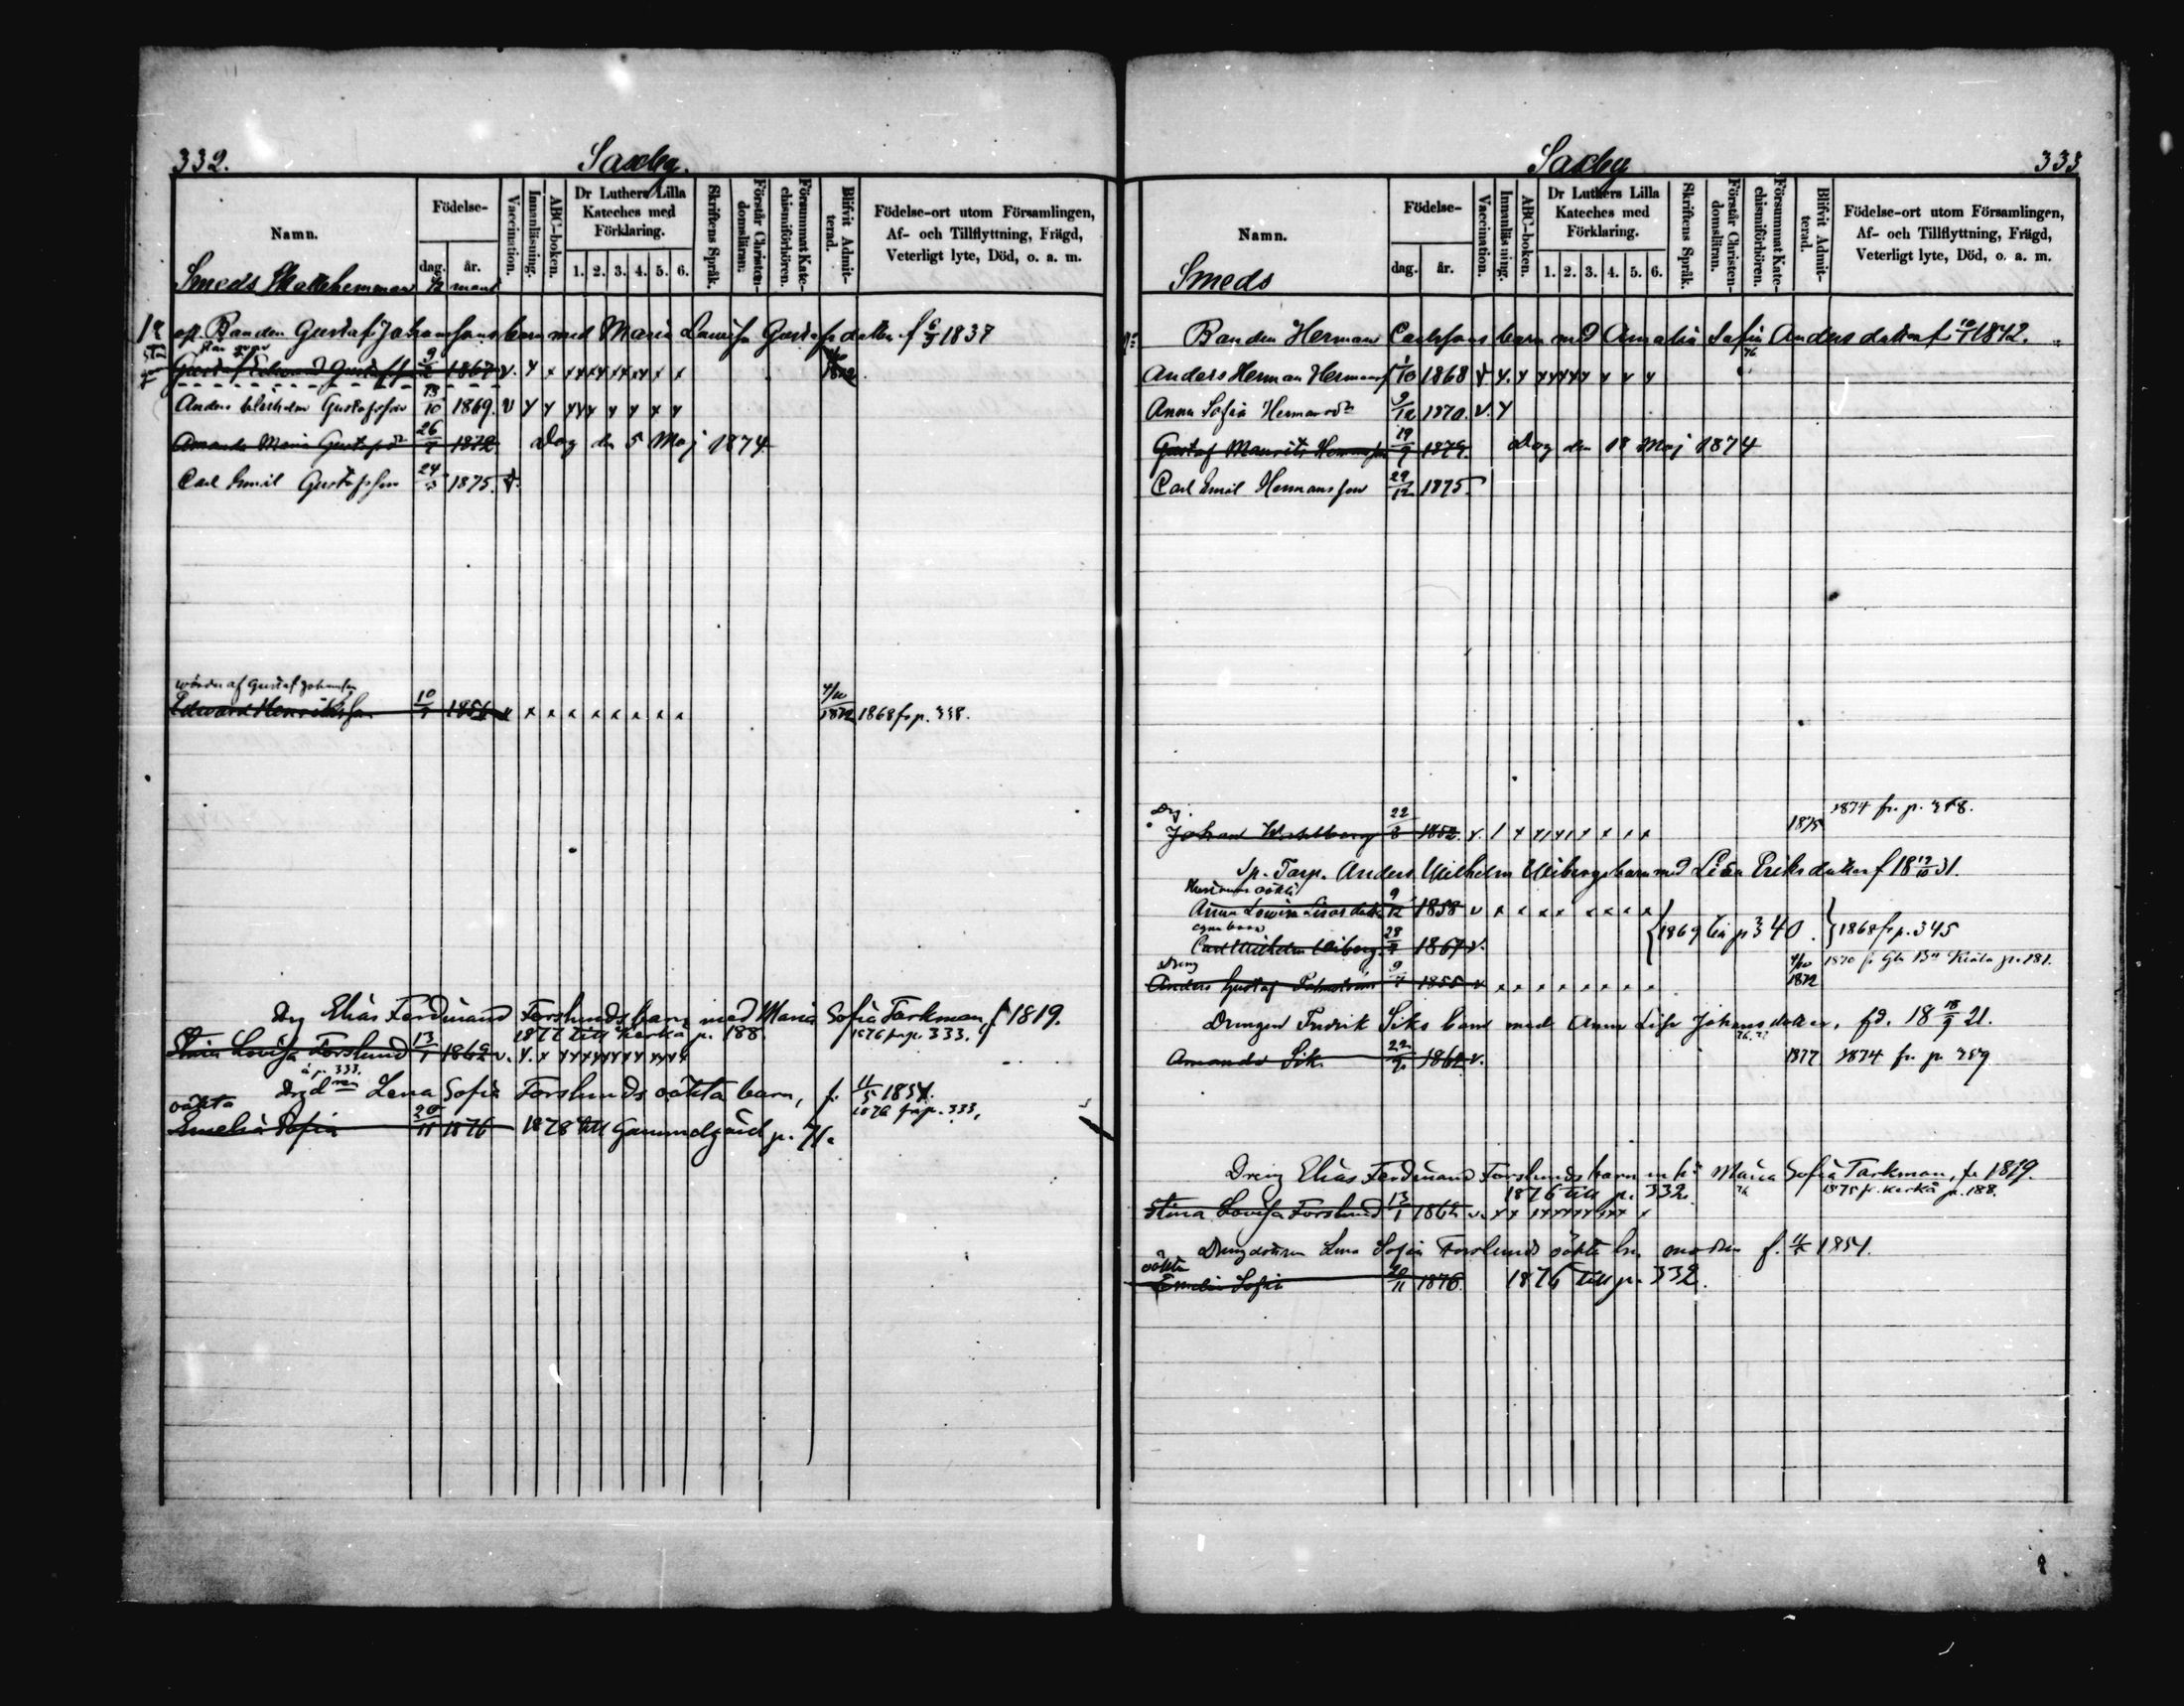 332.
Saxby.
Namn.
Födelse-
dag.
år.
Vaccination.
Innanläsning.
ABC-boken.
Dr Luthers Lilla Kateches med Förklaring.
1. 2. 3. 4. 5. 6.
Skriftens Språk.
Förstår Christendomsläran.
Försummat Katechismiförhören.
Blifvit Admitterad.
Födelse-ort utom Församlingen, Af- och Tillflyttning, Frägd, Veterligt lyte, Död, o. a. m.
Smeds Skattehemman
Bonden Gustaf Johanssons barn med Maria Lovisa Gustafsdotter f 6/3 1837
Gustaf Edvard Gustafss 1867 v.
Anders Wilhelm Gustafsson 13/10 1869. v
Amanda Maria Gustafsdr 26/7 1872 Dog den 5 Maj 1874
Carl Emil Gustafsson 24/5 1875. v.
af Gustaf Johansson
Edward Henriksson 10/7 1856 v 4/10 1872 1868 fr p. 338.
Drg Elias Ferdinand Forslunds barn med Maria Sofia Tarkman, f 1819.
1877 till Kerkä p. 188. 1876 fr p. 333.
Stina Lovisa Forslund 13/1 1862 v.
å p. 333.
Lena Sofia Forslunds oäkta barn, f. 11/5 1854.
oäkta
1876 fr p. 333.
Emelia Sofia 20/11 1876 1878 till Gammelgård p. 71.
Saxby
333
Namn.
Födelse-
dag.
år.
Vaccination.
Innanläsning.
ABC-boken.
Dr Luthers Lilla Kateches med Förklaring.
1. 2. 3. 4. 5. 6.
Skriftens Språk.
Förstår Christendomsläran.
Försummat Katechismiförhören.
Blifvit Admitterad.
Födelse-ort utom Församlingen, Af- och Tillflyttning, Frägd, Veterligt lyte, Död, o. a. m.
Smeds
Bonden Herman Carlssons barn med Amalia Sofia Andersdotter f 10/7 1842.
Anders Herman Hermanss 1/10 1868
Anna Sofia Hermansdr 9/12 1870. v.
Gustaf Maurits Hermansson 19/9 1872. Dog den 18 Maj 1874
Carl Emil Hermansson 29/12 1875
Drg.
Johan Wahlberg 22/3 1852. v. 1875 1874 fr. p. 348.
Sp. Torp. Anders Wilhelm Wibergs barn med Lisa Eriksdotter f 18 19/10 31.
Hustruns oäkta
Anna Lovisa Lisasdotter 9/12 1858 v
egna barn
1869 till p 340. 1868 fr p. 345
Carl Wilhelm Wiberg 28/7 1867 v.
Dreng
Anders Gustaf 9/7 1855 v 4/10 1872 p. 181.
Drengen Fredrik Siks barn med Anna Lisa Johansdotter, fd. 18 18/9 21.
Amanda Sik 22/9 1862 v. 1877 1874 fr. p. 359
Dreng Elias Ferdinand Forslunds barn m h: Maria Sofia Tarkman, f. 1819.
1876 till p. 332. 1875 fr. Kerkä p. 188.
Stina Lovisa Forslund 13/1 1862 v.
Lena Sofia Forslunds oäkta modren f. 11/5 1854.
oäkta
Emelia Sofia 20/11 1876. 1876 till p. 332.